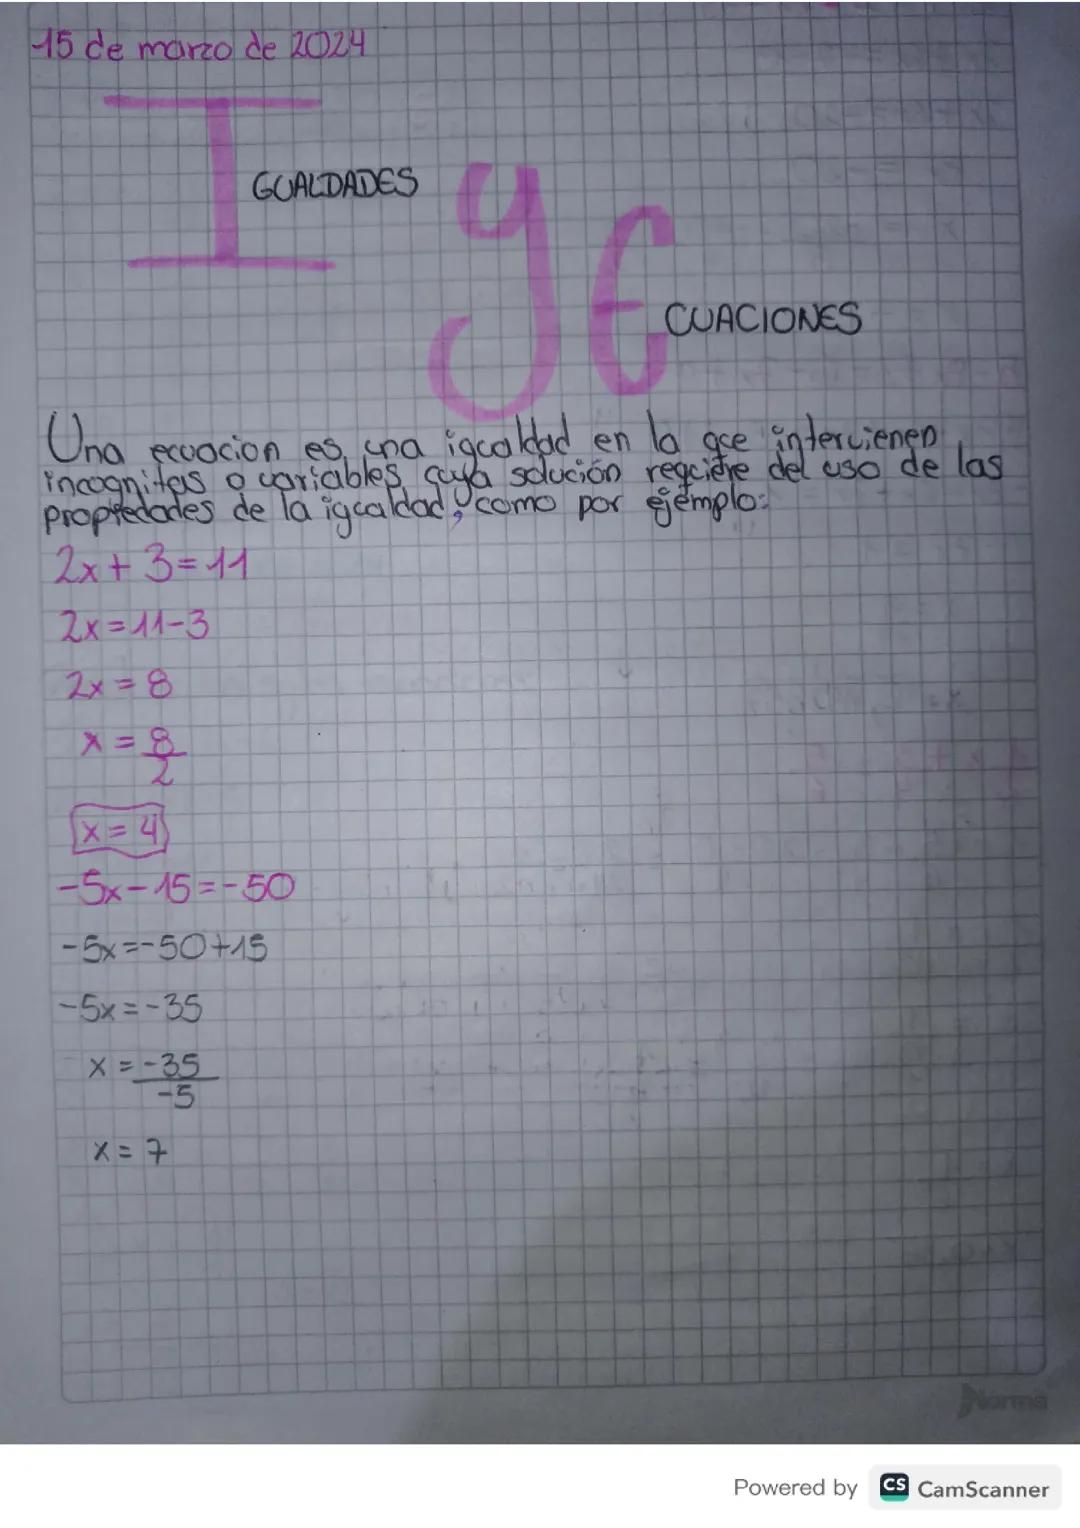 15 de marzo de 2024
IGUALDADES
y ECUACIONES
Una ecuacion es una igualdad en la que intervienen
incognitas o variables cuya solución requiere del uso de las
propiedades de la igualdad, como por ejemplo:
2x + 3 = 11
2x = 11 - 3
2x = 8
x = 8/2
x = 4
-5x - 15 = -50
-5x = -50 + 15
-5x = -35
x = -35/-5
x = 7
Norma
Powered by CS CamScanner